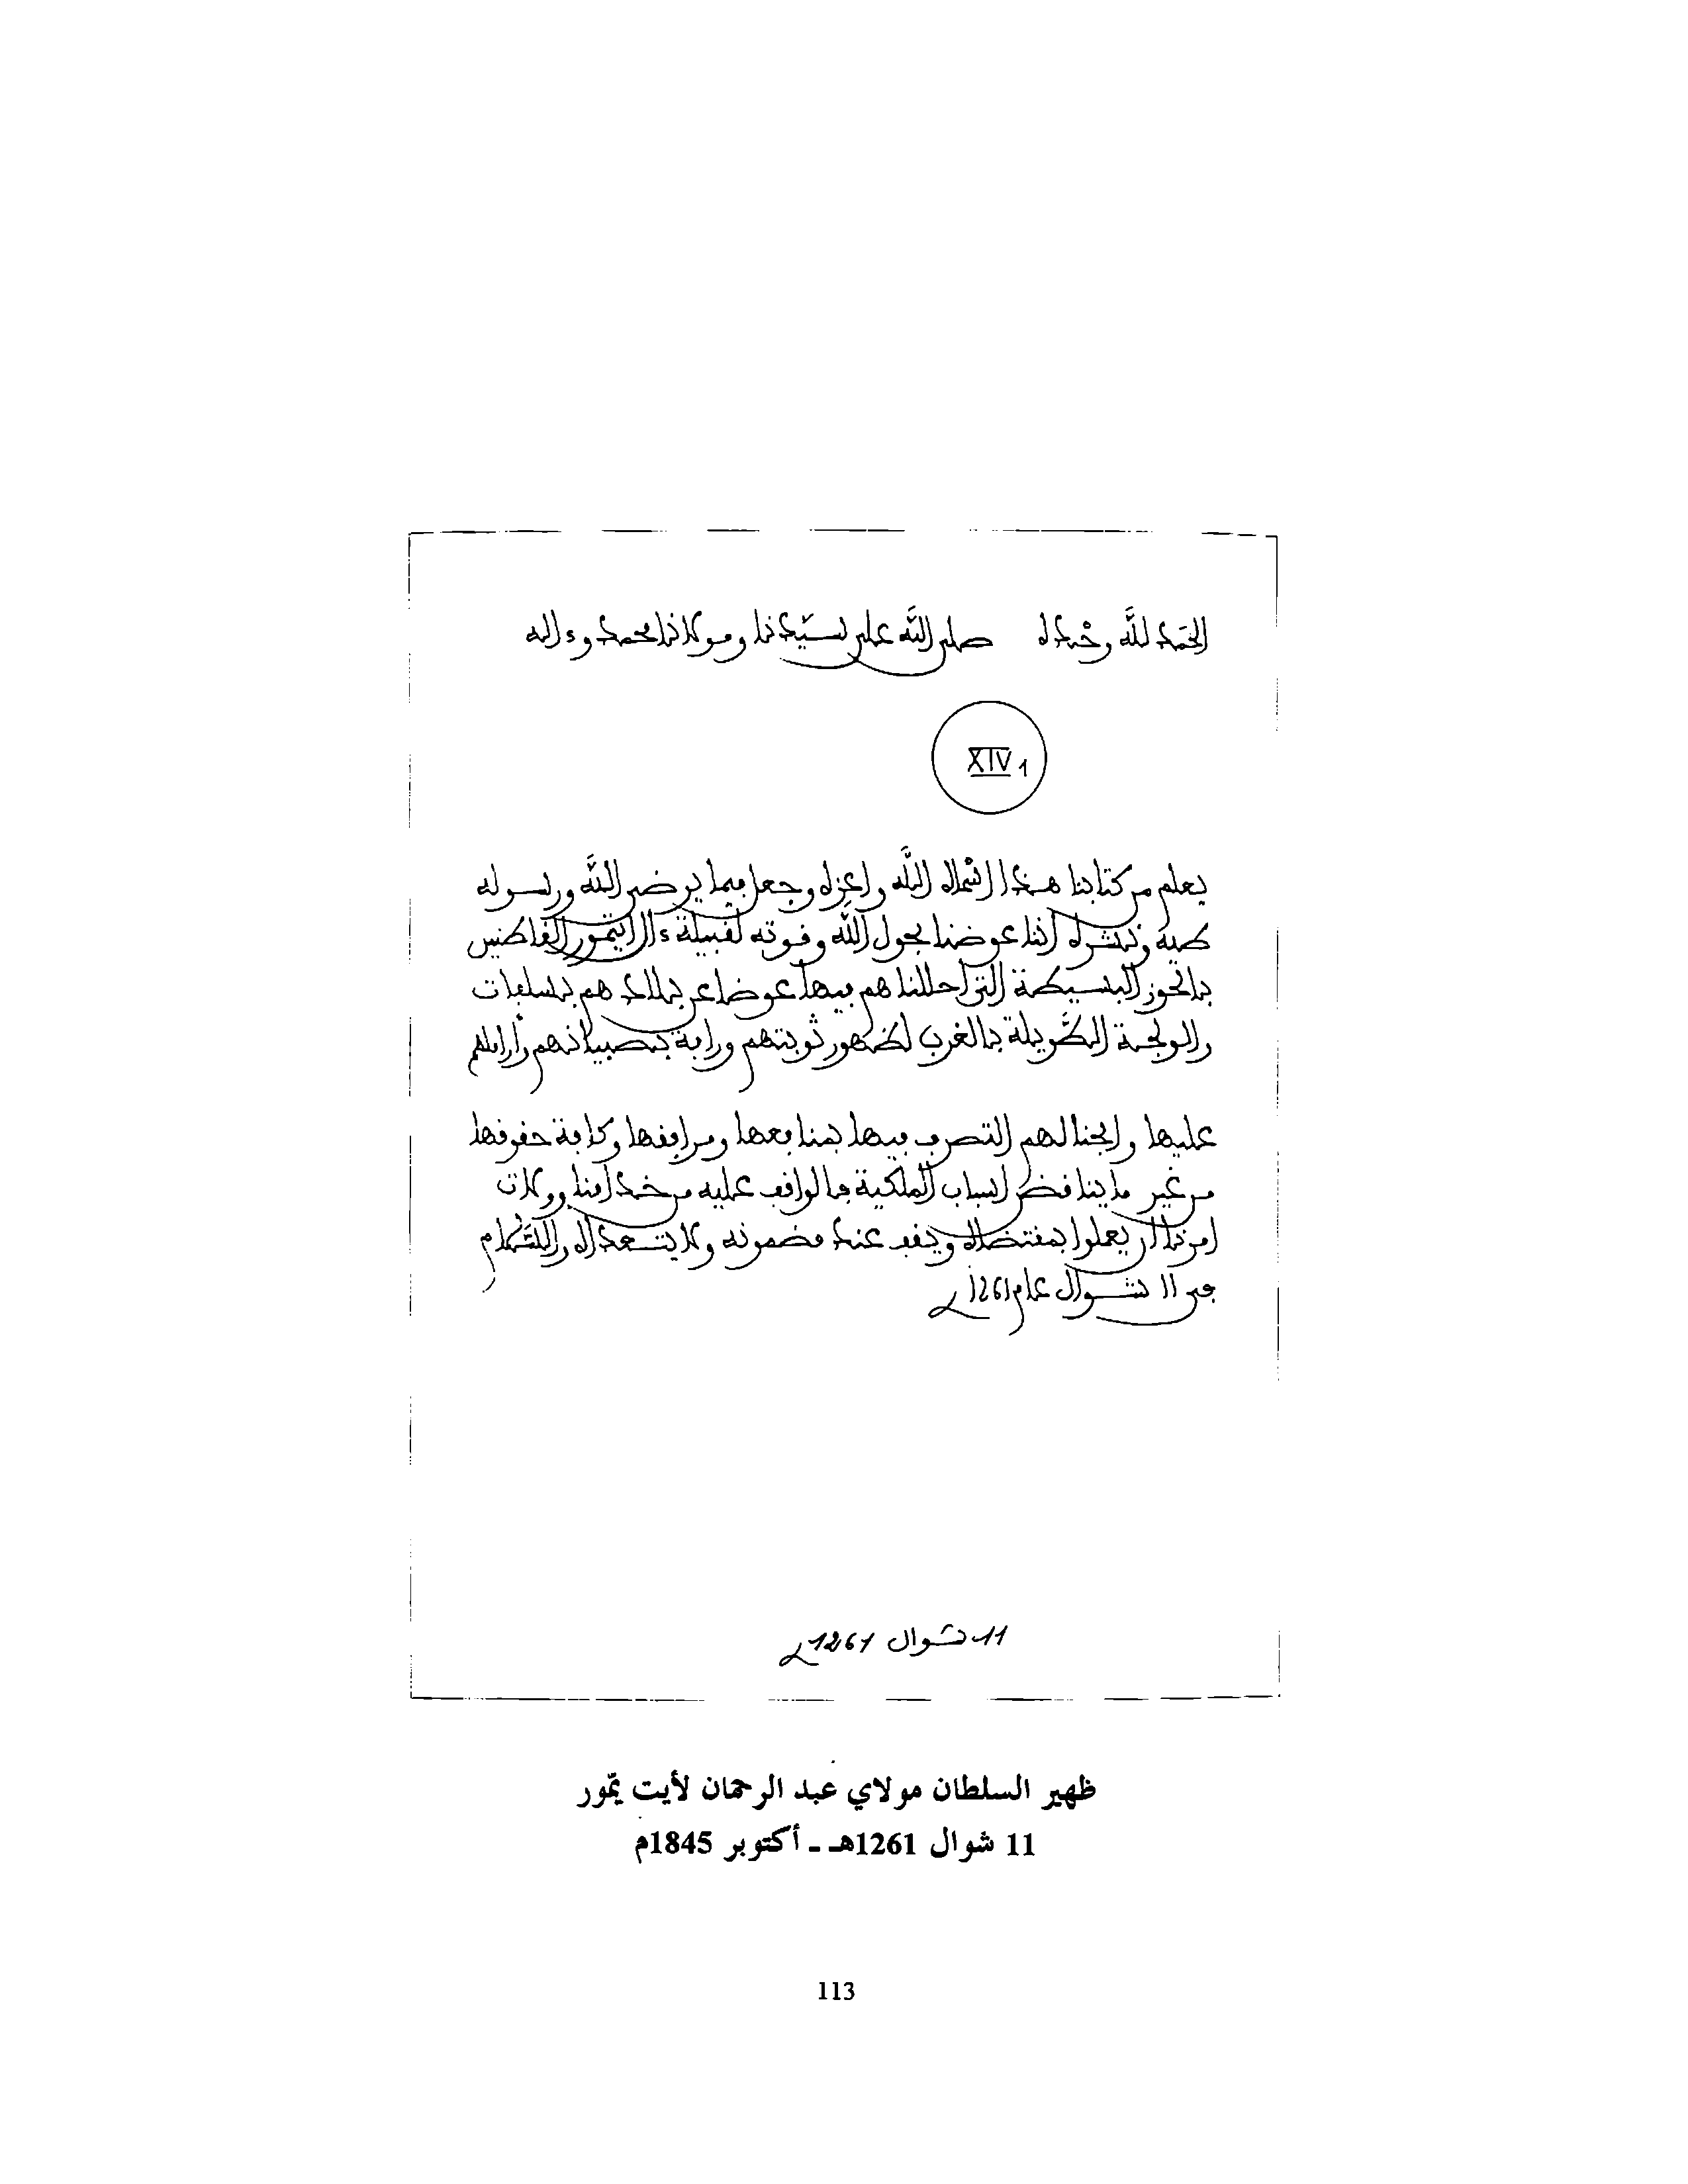 الحمد لله وحده صلى الله على سيدنا ومولانا محمد وءاله
XIV 1
يعلم من كتابنا هذا اسماه الله واعزه وجعل فيما يرضي الله ورسوله
طيه ونشره اننا عوضنا بحول الله وقوته لقبيلة ءال ايتمور القاطنين
بالحوز البسيطة التي احللناهم فيها عوضا عن بلادهم بسلفات
والولجة الطويلة بالغرب لظهور توبتهم ورأفة بصبيانهم وأراملهم
عليها وابحنا لهم التصرف فيها بمنافعها ومرافقها وكافة حقوقها
من غير ما يناقض اسباب الملكية فالواقف عليه من خدامنا وولات
امرنا ان يعملوا بمقتضاه ويقف عند مضمونه ولا يتعداه والسلام
في 11 شوال عام 1261
11 شوال 1261
ظهير السلطان مولاي عبد الرحمان لأيت يمّور
11 شوال 1261هـ - أكتوبر 1845م
113